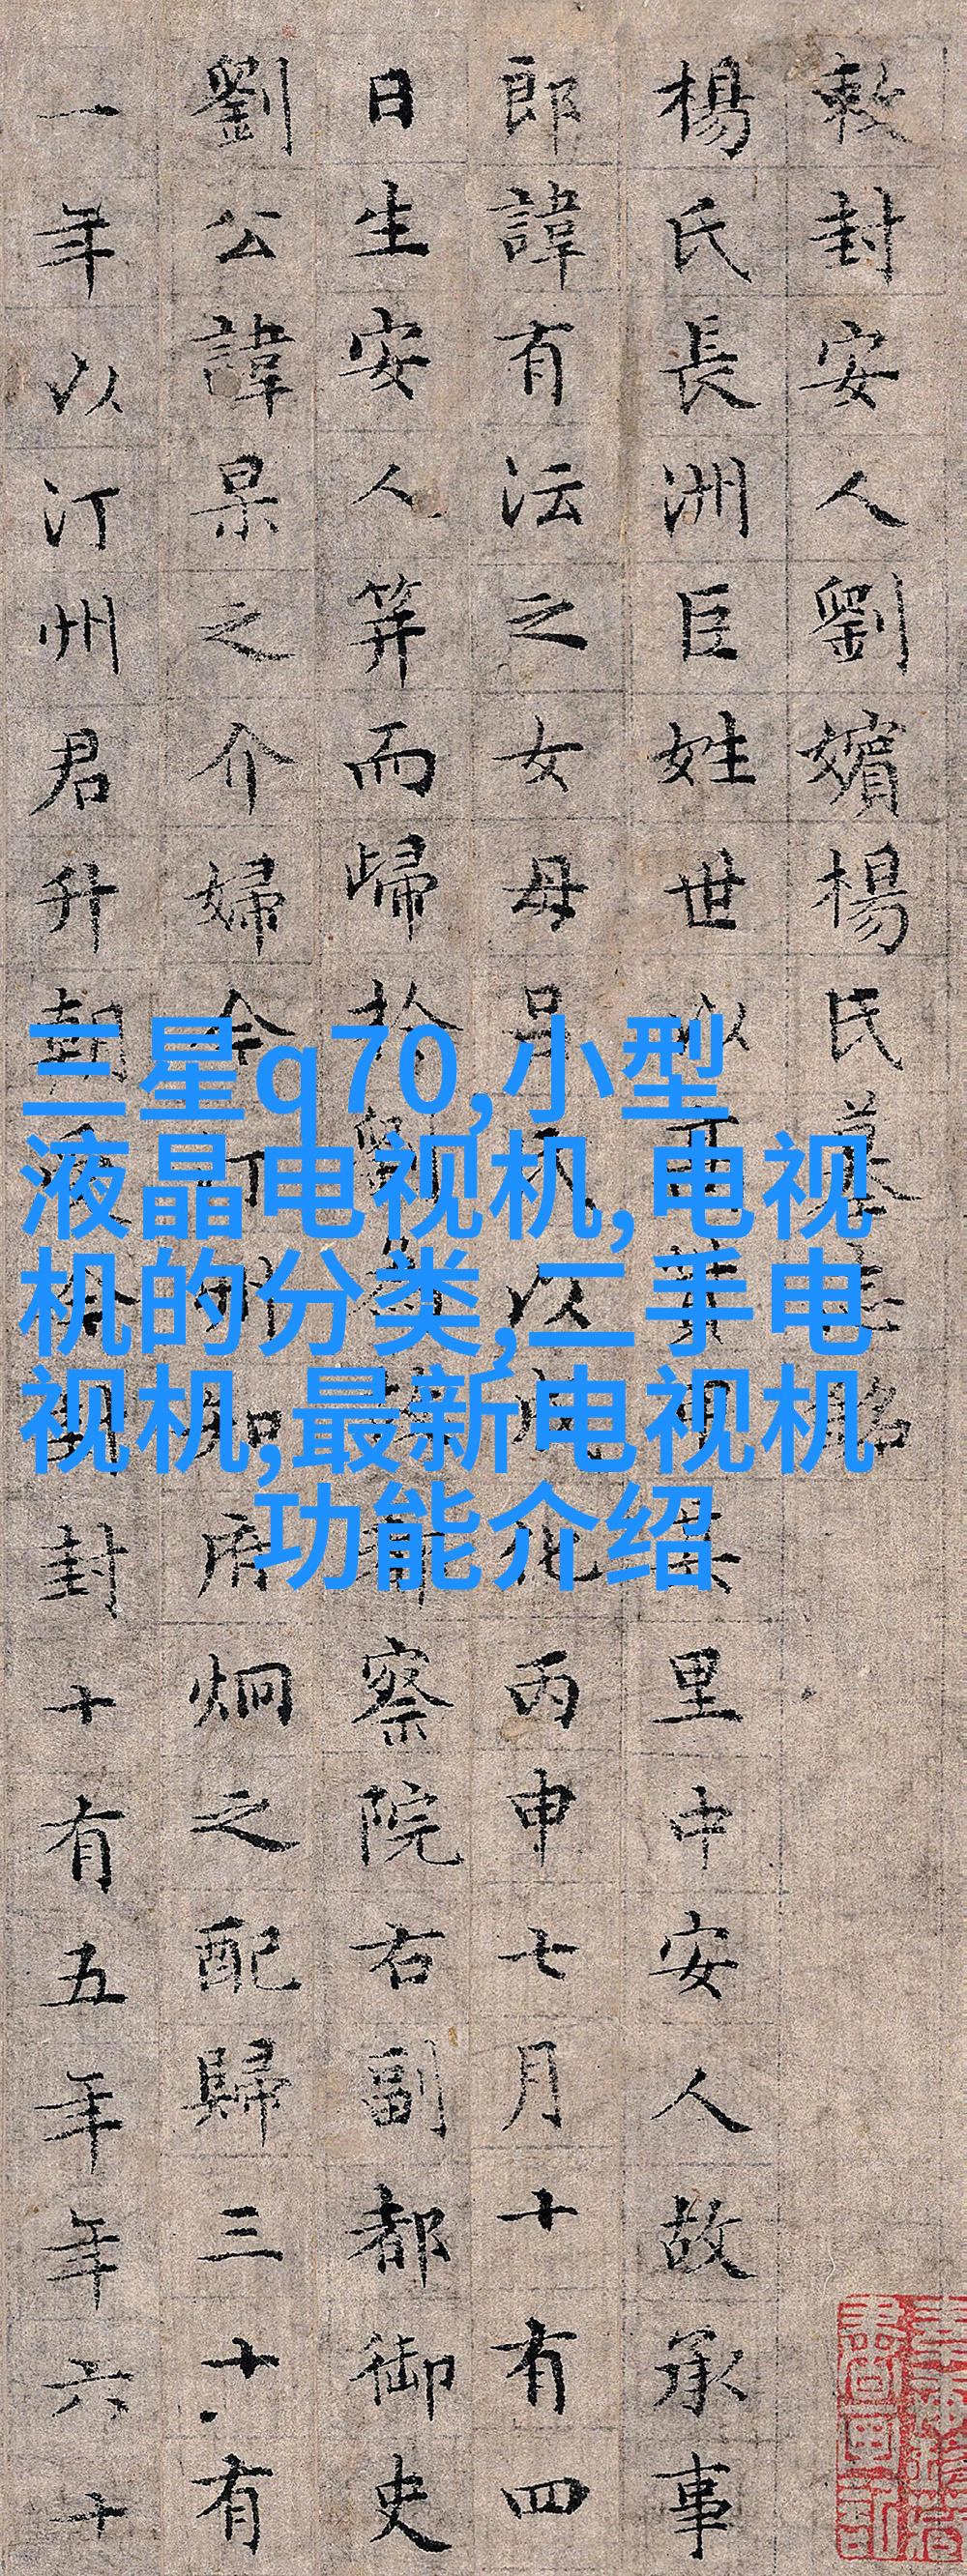 敕封安人劉嬪楊氏墓志銘
楊氏長洲臣姓世以里中安人故承事
郎諱有沄之女母呂以化丙申七月十有四
日生安人筭而歸於察院右副都御史
劉公諱杲之介婦今州知府炯之配歸三十有
一年以汀州君升朝封十有五年年六十
三星q70,小型
液晶电视机,电视
机的分类,二手电
视机,最新电视机
功能介绍